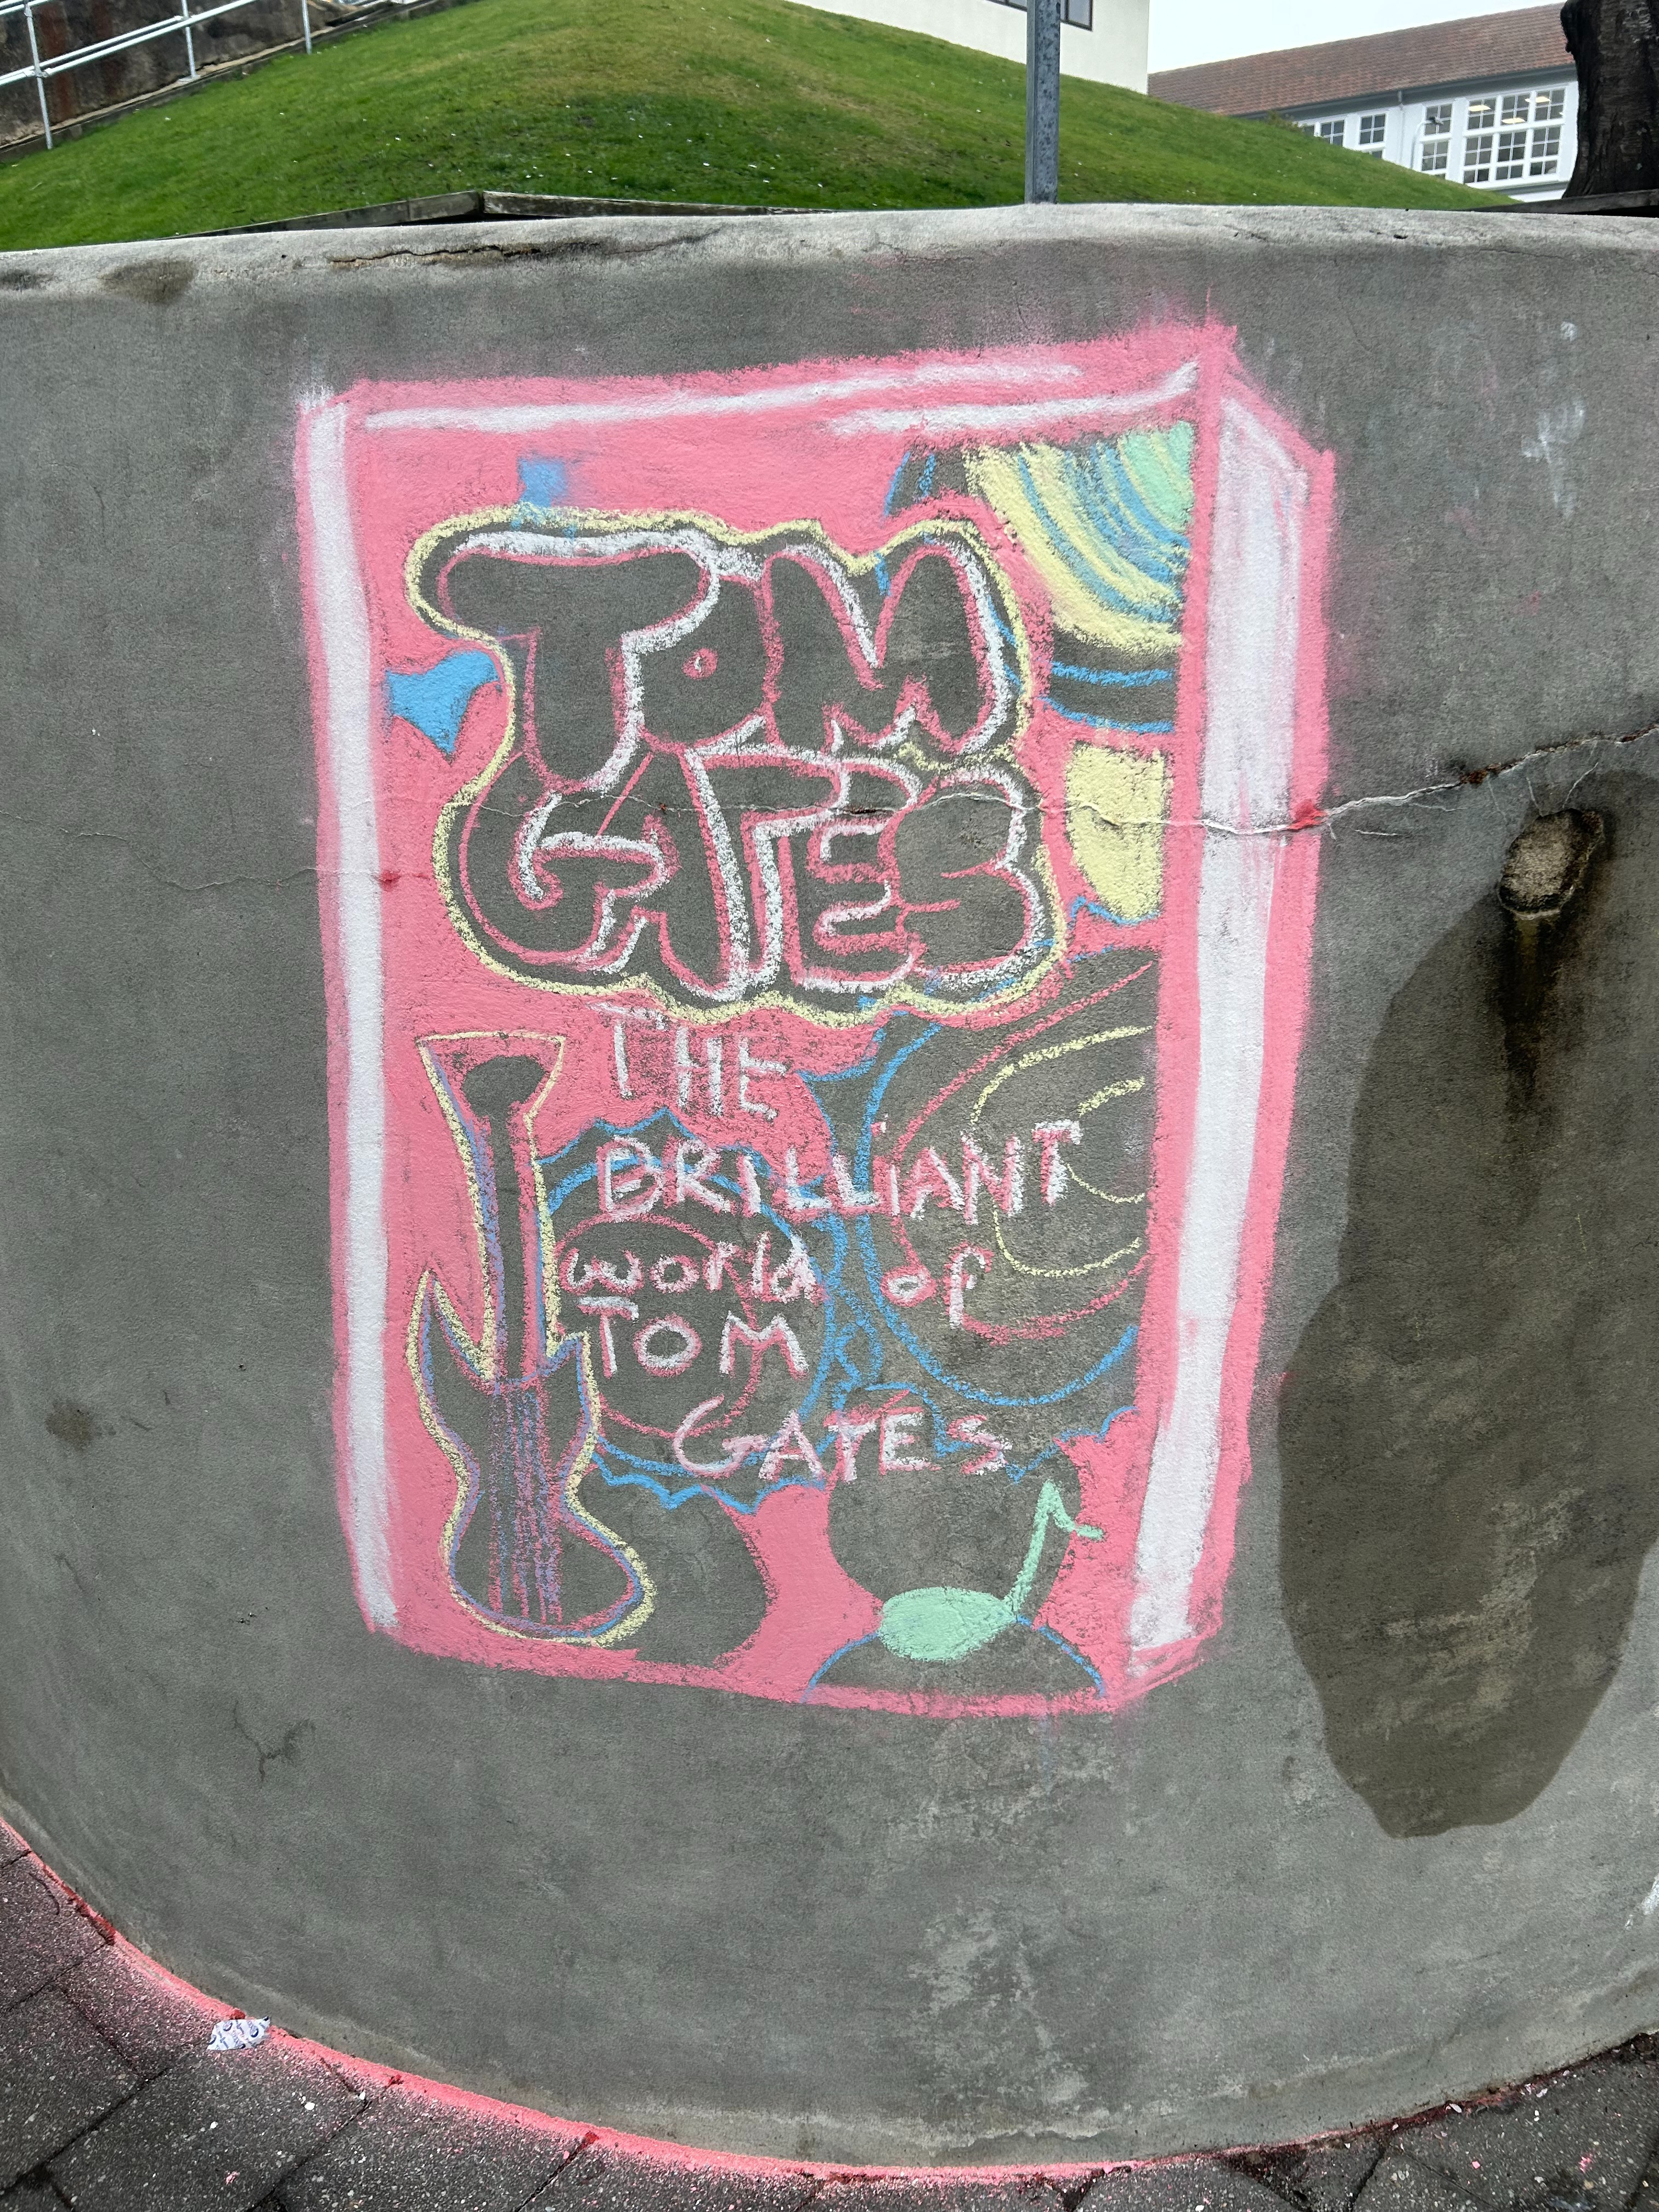 TOM
GATES
THE
BRILLiANT
world of
TOM
GATES